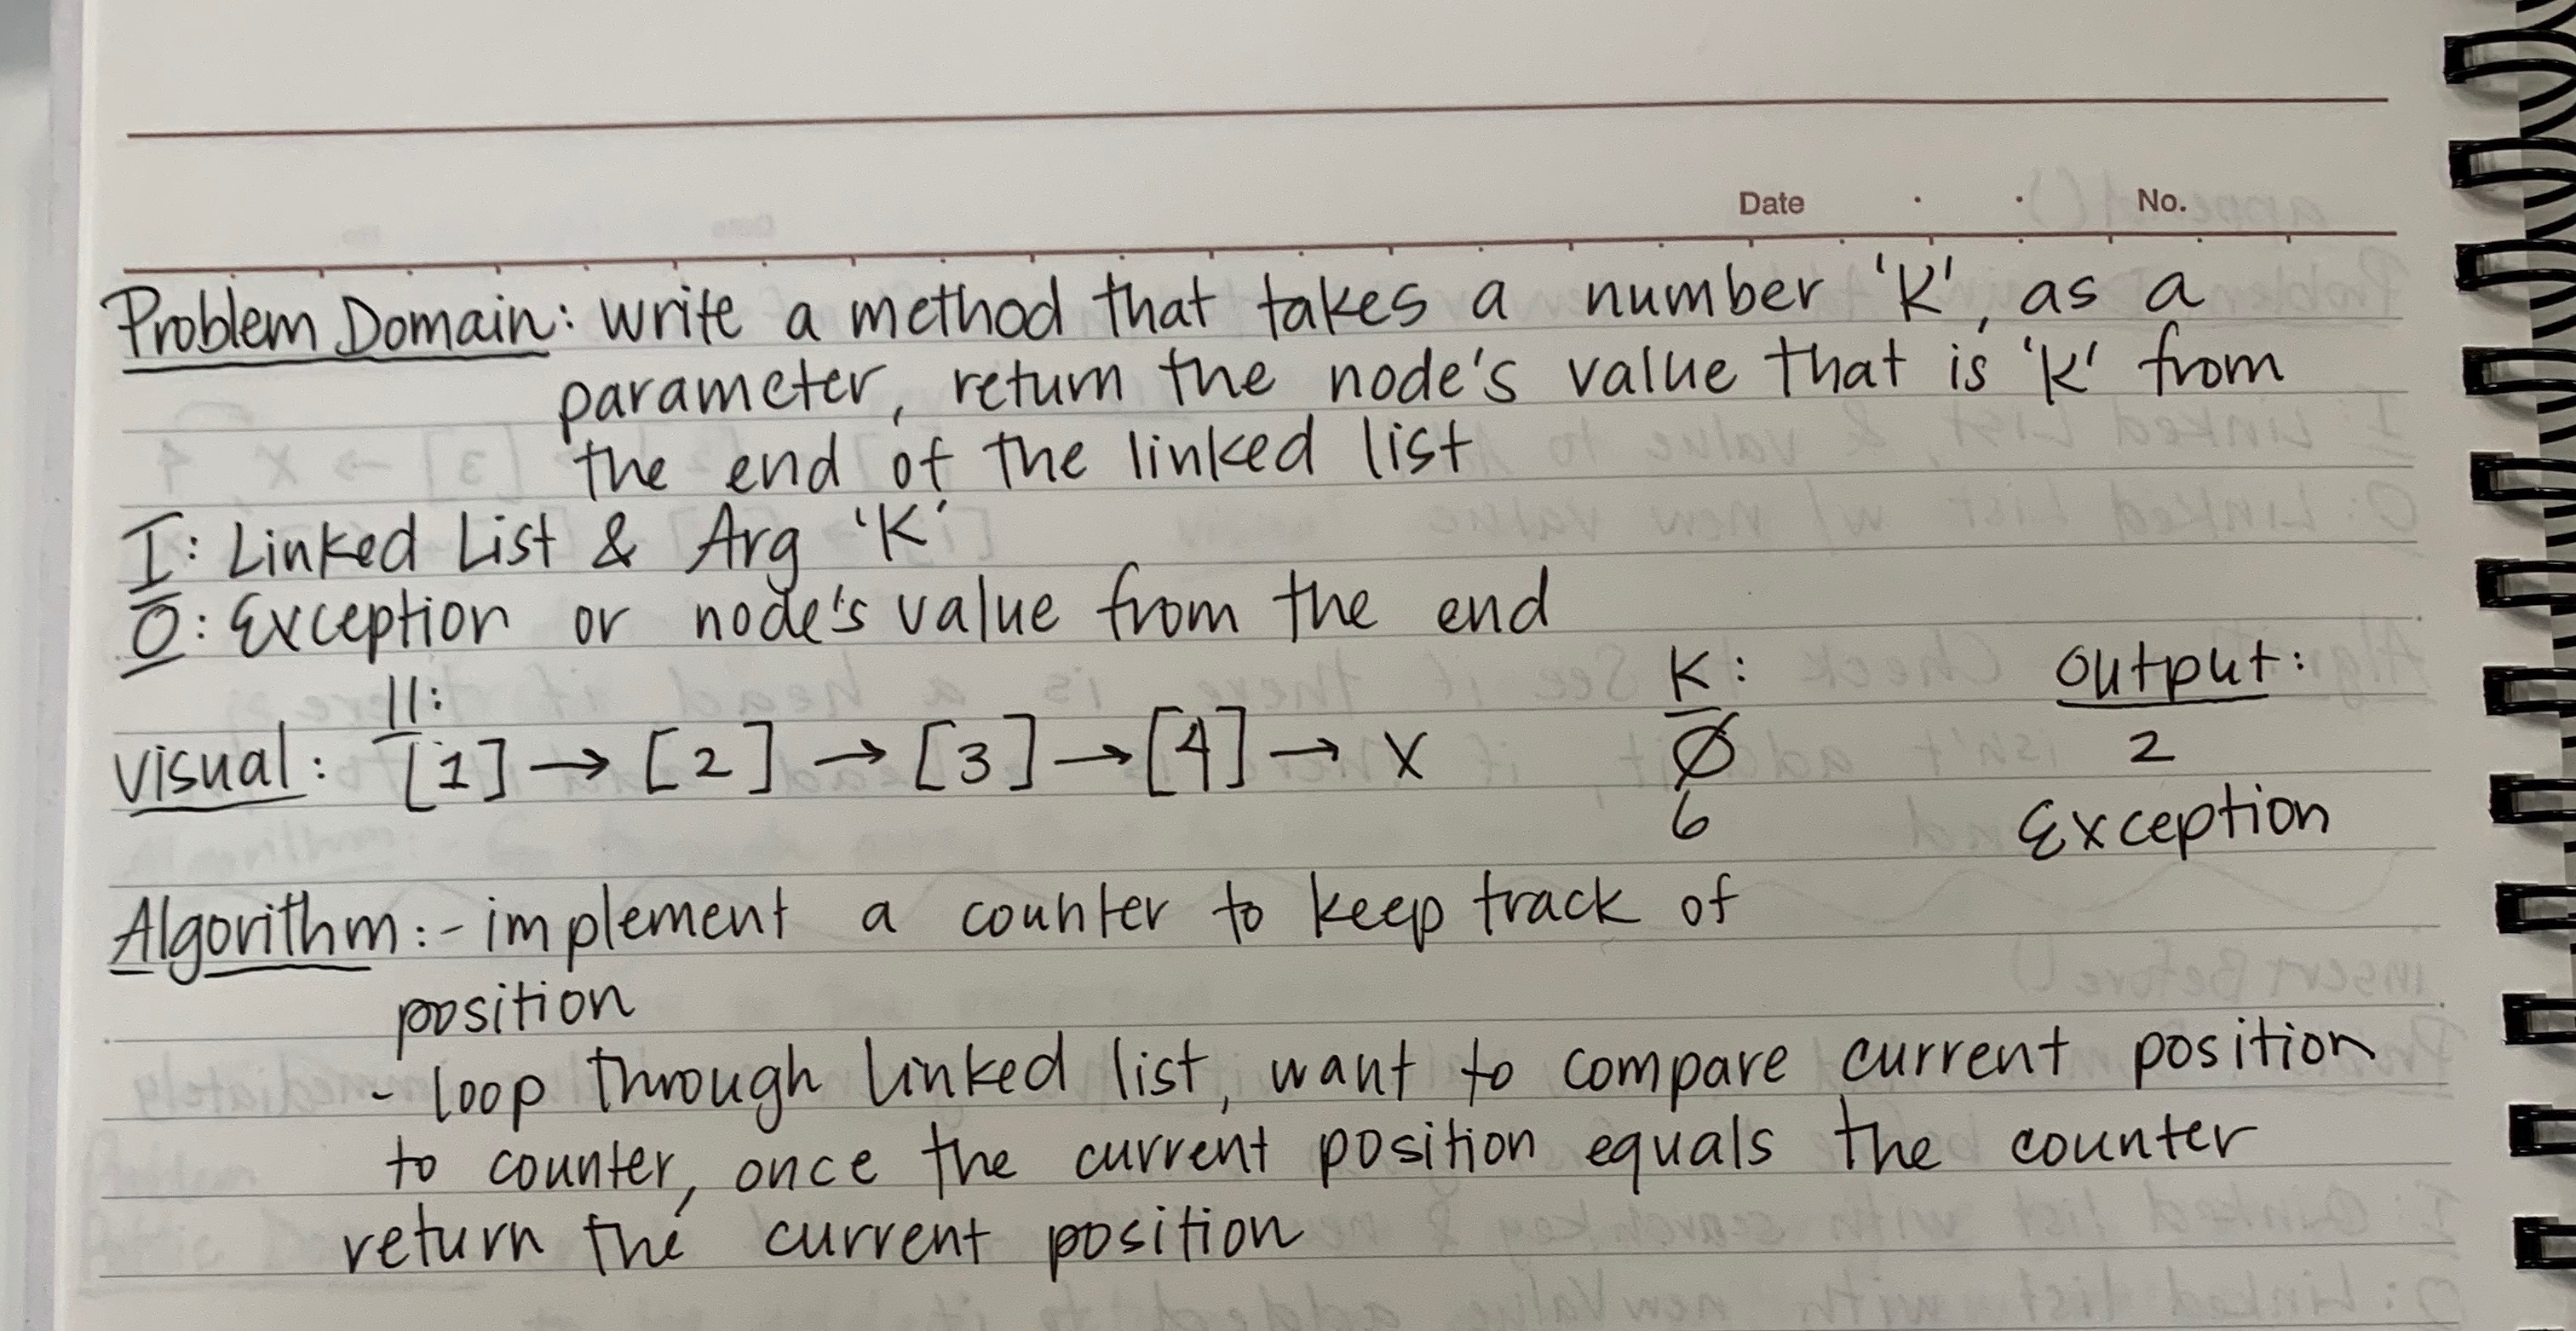 Date . . No.
Problem Domain: write a method that takes a number 'K', as a
parameter, return the node's value that is 'K' from
the end of the linked list
I: Linked List & Arg 'K'
O: Exception or node's value from the end
ll: K: output:
visual: [1] → [2] → [3] → [4] → X Ø 2
6 Exception
Algorithm: - implement a counter to keep track of
position
- loop through linked list, want to compare current position
to counter, once the current position equals the counter
return the current position